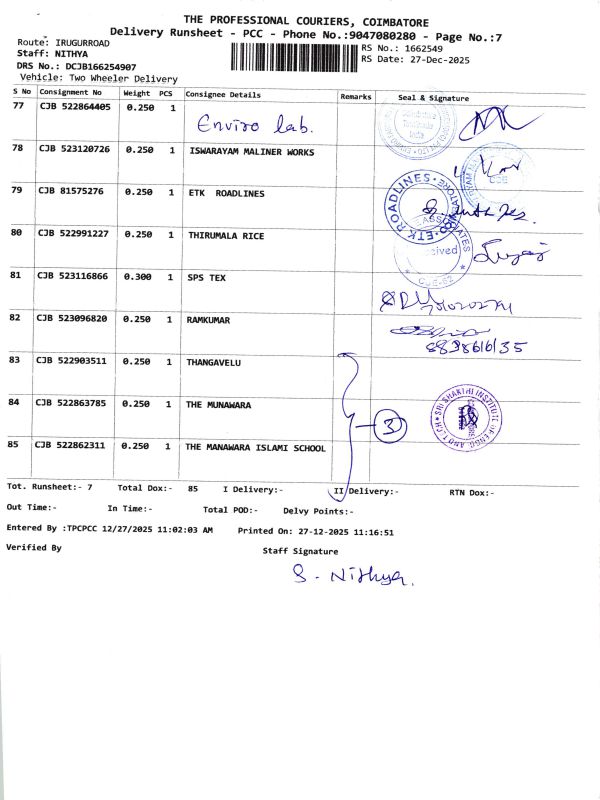 THE PROFESSIONAL COURIERS, COIMBATORE
Delivery Runsheet - PCC - Phone No.:9047080280 - Page No.:7
Route: IRUGURROAD
RS No.: 1662549
Staff: NITHYA
RS Date: 27-Dec-2025
DRS No.: DCJB166254907
Vehicle: Two Wheeler Delivery
S No Consignment No Weight PCS Consignee Details Remarks Seal & Signature
77 CJB 522864405 0.250 1 Enviro lab.
78 CJB 523120726 0.250 1 ISWARAYAM MALINER WORKS
79 CJB 81575276 0.250 1 ETK ROADLINES
ETK ROADLINES
80 CJB 522991227 0.250 1 THIRUMALA RICE
81 CJB 523116866 0.300 1 SPS TEX
82 CJB 523096820 0.250 1 RAMKUMAR
83 CJB 522903511 0.250 1 THANGAVELU
84 CJB 522863785 0.250 1 THE MUNAWARA
3
SRI SHAKTHI INSTITUTE OF ENGG AND TECH
85 CJB 522862311 0.250 1 THE MANAWARA ISLAMI SCHOOL
Tot. Runsheet:- 7 Total Dox:- 85 I Delivery:- II Delivery:- RTN Dox:-
Out Time:- In Time:- Total POD:- Delvy Points:-
Entered By :TPCPCC 12/27/2025 11:02:03 AM Printed On: 27-12-2025 11:16:51
Verified By Staff Signature
S. Nithya.